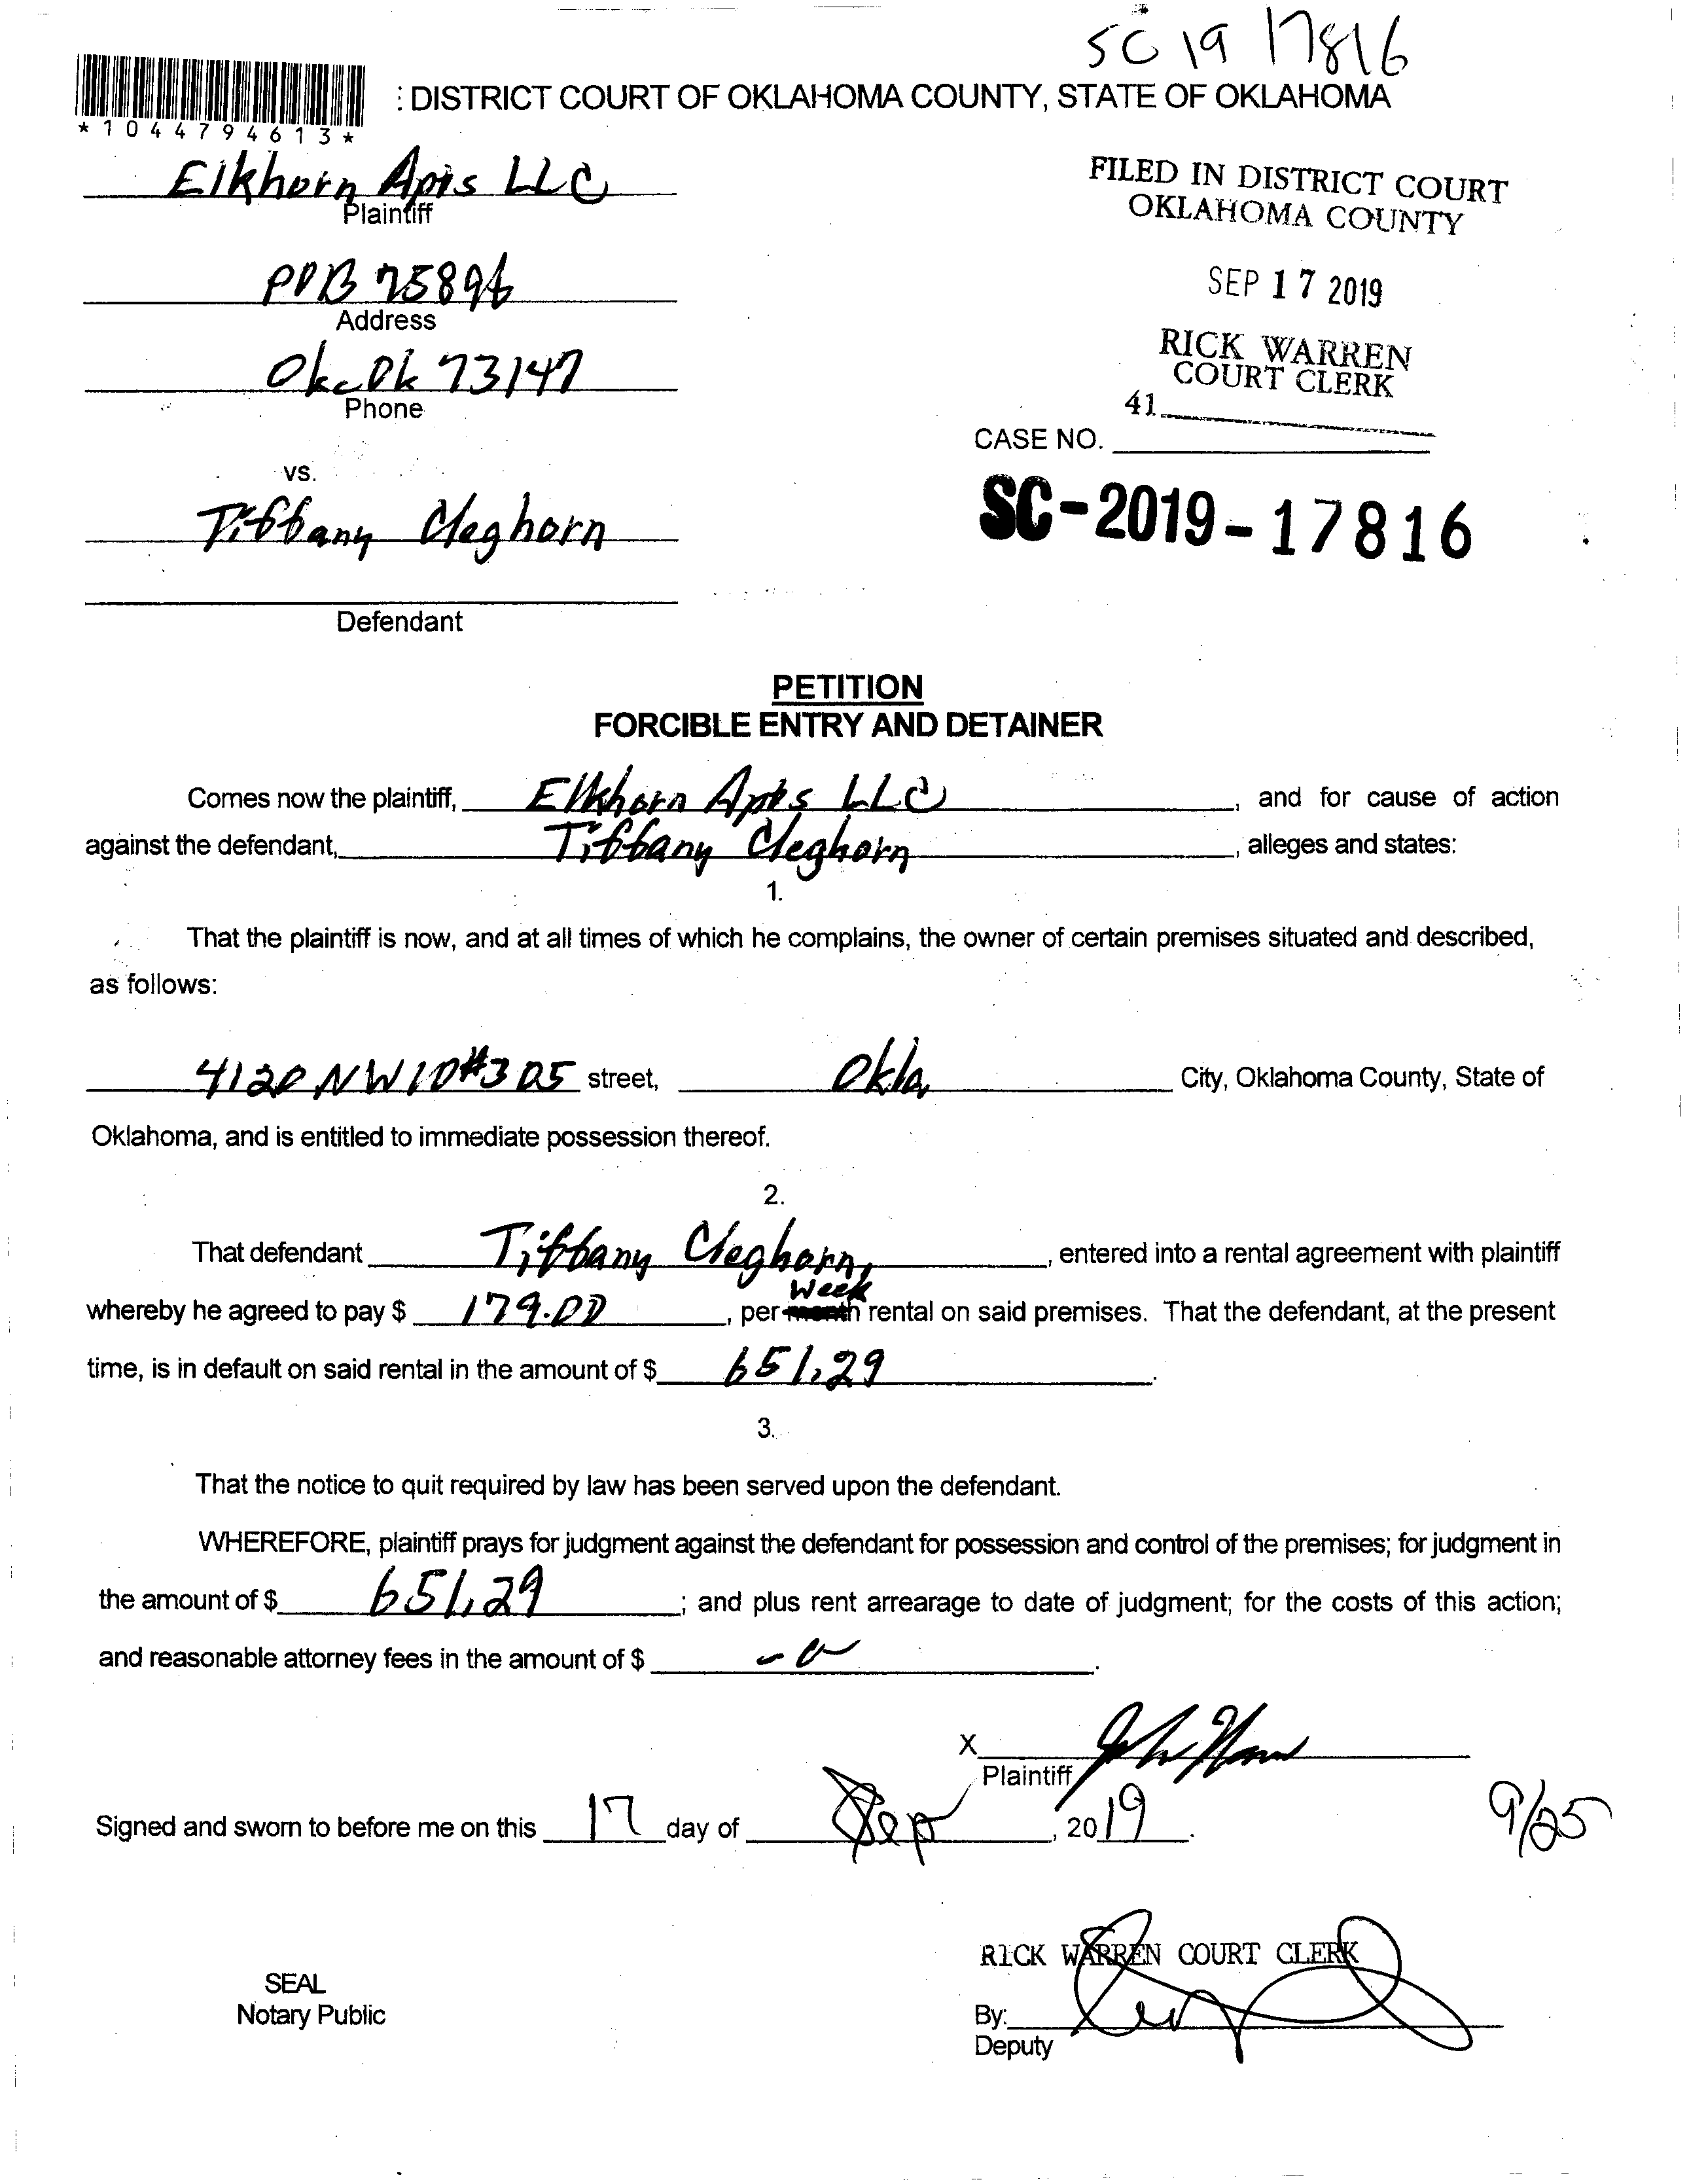 SC 19 17816
: DISTRICT COURT OF OKLAHOMA COUNTY, STATE OF OKLAHOMA
*1044794613*
Elkhorn Apts LLC
Plaintiff
FILED IN DISTRICT COURT
OKLAHOMA COUNTY
POB 75896
Address
SEP 17 2019
Okc Ok 73147
Phone
RICK WARREN
COURT CLERK
41
CASE NO.
vs.
SC-2019-17816
Tiffany Cleghorn
Defendant
PETITION
FORCIBLE ENTRY AND DETAINER
Comes now the plaintiff, Elkhorn Apts LLC, and for cause of action
against the defendant, Tiffany Cleghorn, alleges and states:
1.
That the plaintiff is now, and at all times of which he complains, the owner of certain premises situated and described,
as follows:
4120 NW 10 #305 street, Okla, City, Oklahoma County, State of
Oklahoma, and is entitled to immediate possession thereof.
2.
That defendant Tiffany Cleghorn, , entered into a rental agreement with plaintiff
Week
whereby he agreed to pay $ 179.00, per month rental on said premises. That the defendant, at the present
time, is in default on said rental in the amount of $ 651.29.
3.
That the notice to quit required by law has been served upon the defendant.
WHEREFORE, plaintiff prays for judgment against the defendant for possession and control of the premises; for judgment in
the amount of $ 651.29; and plus rent arrearage to date of judgment; for the costs of this action;
and reasonable attorney fees in the amount of $ -0-.
X
Plaintiff
Signed and sworn to before me on this 17 day of Sep, 2019.
9/25
RICK WARREN COURT CLERK
SEAL
Notary Public
By:
Deputy